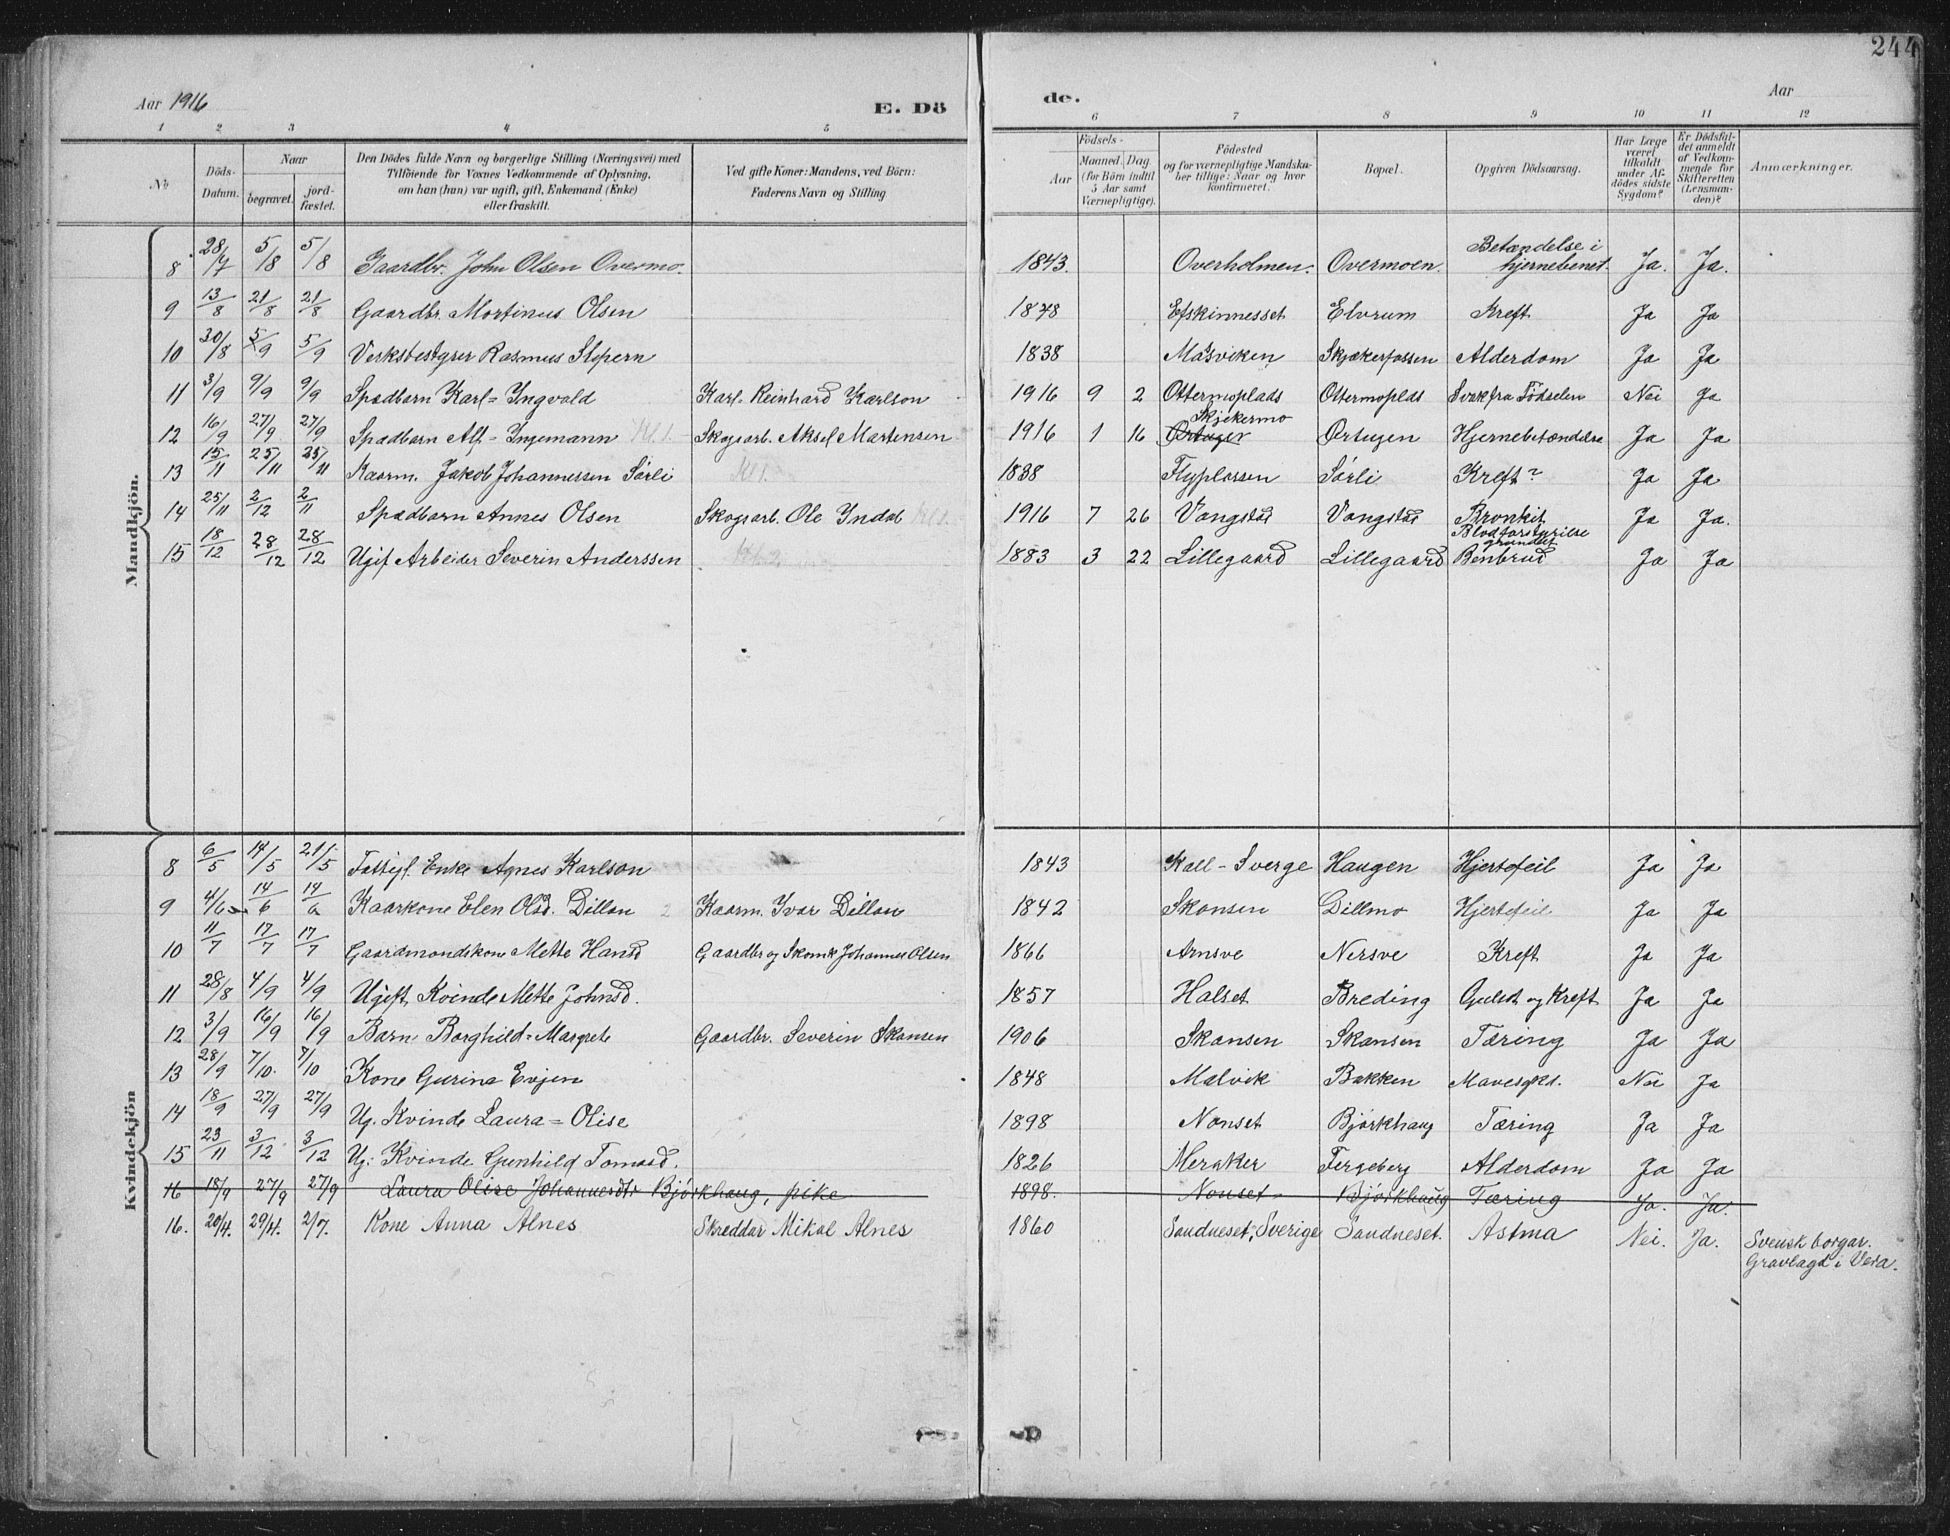 244
Aar 1916
E. Dö
de.
Aar
1 2 3 4 5 6 7 8 9 10 11 12
No
Döds-
Datum.
Naar
begravet.
jord-
fæstet.
Den Dödes fulde Navn og borgerlige Stilling (Næringsvei) med
Tilföiende for Voxnes Vedkommende af Oplysning,
om han (hun) var ugift, gift, Enkemand (Enke)
eller fraskilt.
Ved gifte Koner: Mandens, ved Börn:
Faderens Navn og Stilling
Födsels-
Aar
Maaned. Dag
(for Börn indtil
5 Aar samt
Værnepligtige).
Födested
og for værnepligtige Mandska-
ber tillige: Naar og hvor
konfirmeret.
Bopæl.
Opgiven Dödsaarsag.
Har Læge
været
tilkaldt
under Af-
dödes sidste
Sygdom?
Er Dödsfal-
det anmeldt
af Vedkom-
mende for
Skifteretten
(Lensman-
den)?
Anmærkninger.
Mandkjön.
8 28/7 5/8 5/8 Gaardbr. John Olsen Overmo. 1843. Overholmen. Overmoen. Betændelse i hjernebenet. Ja. Ja.
9 13/8 21/8 21/8 Gaardbr. Mortinus Olsen 1848 Efskinnesset Elvrum Kreft Ja Ja
10 30/8 5/9 5/9 Verksbestyrer Rasmus 1838 Masviken Skjækerfossen Alderdom Ja Ja
11 3/9 9/9 9/9 Spædbarn Karl=Ingvald Karl Reinhard Karlson 1916 9 2 Ottermoplads Ottermoplds Svak fra Födselen Nei Ja
12 16/9 27/9 27/9 Spædbarn Alf=Ingemann Skogsarb. Aksel Martensen 1916 1 16 Skjekermo Ørtugen Ørtugen Hjernebetændelse Ja Ja
13 15/11 25/11 25/11 Kaarm. Jakob Johannessen Sörli 1838 Sörli Kreft? Ja Ja
14 25/11 2/12 2/11 Spædbarn Annes Olsen Skogsarb. Ole Indal 1916 7 26 Vangstad Vangstad Bronkit Ja Ja.
15 18/12 28/12 28/12 Ugif Arbeider Severin Anderssen 1883 3 22 Lillegaard Lillegaard Blodforstyrrelse grundet Benbrud Ja Ja
Kvindekjön
8 6/5 14/5 21/5 Enke Agnes Karlson 1843 Kall-Sverge Haugen Hjertefeil Ja Ja
9 4/6 14/6 14/6 Kaarkone Elen Olsd. Dillan Kaarm. Ivar Dillan 1842 Skansen Dillmo Hjertefeil Ja Ja
10 11/7 17/7 17/7 Gaardmandskone Mette Hansd Gaardbr og Skomk Johannes Olsen 1866 Arnsve Nersve Kreft Ja Ja
11 28/8 4/9 4/9 Ugift Kvinde Mette Johnsd. 1857 Halset Breding Gulsot og Kreft Ja Ja
12 3/9 16/9 16/9 Barn Borghild=Margrete Gaardbr. Severin Skansen 1906 Skansen Skansen Tæring Ja Ja
13 28/9 7/10. 7/10 Kone Gurina Evjen 1848 Malvik Bakken Mavesykd. Nei Ja
14 18/9 27/9 27/9 Ug. Kvinde Laura=Olise 1898 Nonset Bjørkhaug Tæring Ja Ja
15 23/11 3/12 3/12 Ug. Kvinde Gunhild Tomasd. 1826 Meraker Fergeberg Alderdom Ja Ja
16 18/9 27/9 27/9 Laura Olise Johannesdtr Bjørkhaug, pike 1898. Nonset Bjørkhaug Tæring Ja. Ja.
16. 20/4. 29/4. 2/7. Kone Anna Alnes Skreddar Mikal Alnes 1860 Sandneset, Sverige Sandneset. Astma Nei. Ja. Svensk borgar.
Gravlagd i Vera.